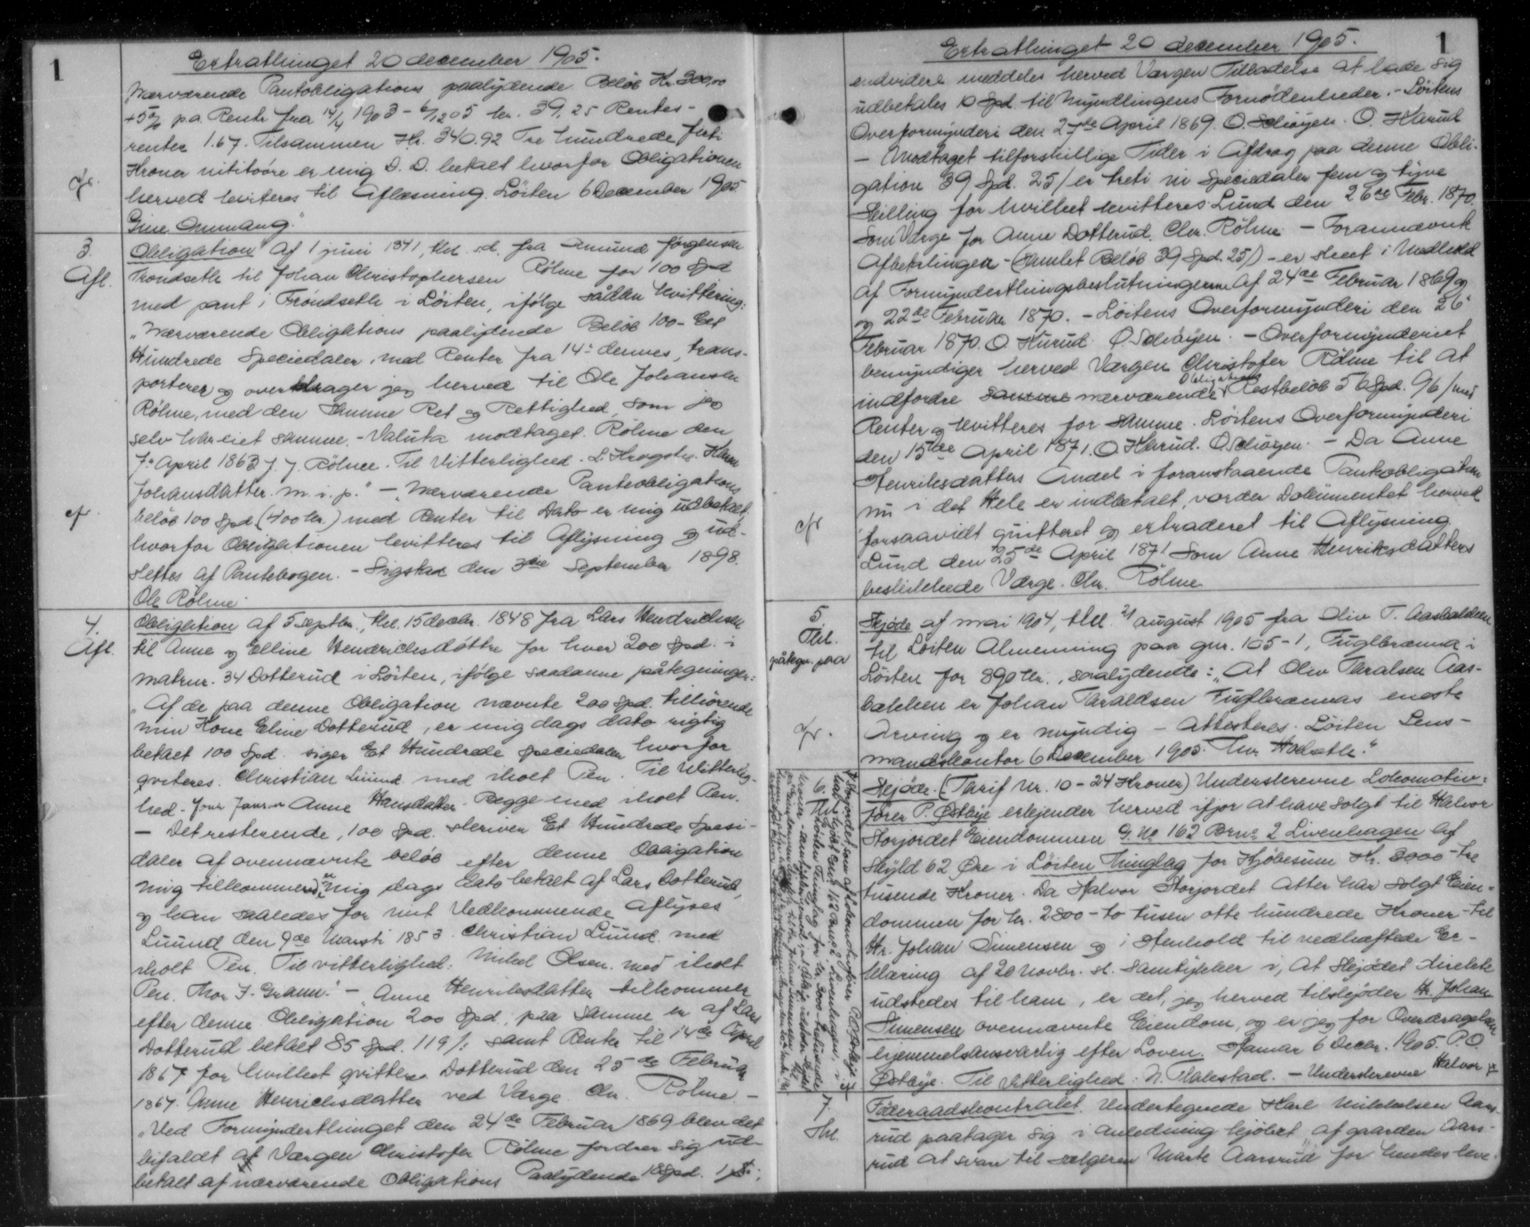 1
Extrathinget 20 december 1905.
Nærværende Pantobligations paalydende Beløb Kr. 300,00
+5% pa Rente fra 14/4 1903 - 6/12 05 kr. 39,25 Rentes-
renter 1.67. Tilsammen Kr. 340.92 Tre hundrede firti
Kroner nititoøre er mig D. D. betalt hvorfor Obligationen
herved kviteres til Aflæsning. Løiten 6 December 1905
Gine
3.
Afl.
Obligation af 1 juni 1841, thl. s.d. fra Amund Jørgensen
Trondseth til Johan Christophersen Rölme for 100 Spd
med pant i Trøndseth i Løiten, ifølge sådan kvittering:
"Nærværende Obligations paalydende Beløb 100 - Et
Hundrede Speciedaler, med Renter fra 14de dennes, trans-
porterer og overdrager jeg herved til Ole Johansen
Rölme, med den samme Ret og Rettighed, som jeg
selv har eiet samme. - Valuta modtaget. Rölme den
7de April 1863 J. J. Rölme. Til Vitterlighed. L. Krogstu. Karen
Johansdatter m. i. p." - "Nærværende Panteobligations
beløb 100 Spd (400 kr.) med Renter til Dato er mig udbetalt
hvorfor Obligationen kvitteres til Aflysning og ud-
slettes af Pantebogen. - Sigstad den 3die September 1898.
Ole Rölme
4.
Afl.
Obligation af 5 septbr., thl. 15 decbr. 1848 fra Lars Hendrichsen
til Anne og Elline Hendrichsdøttre for hver 200 Spd. i
matrnr. 34 Dotterud i Løiten, ifølge saadanne påtegninger:
"Af de paa denne Obligation nævnte 200 Spd. tilhørende
min Kone Eline Dotterud, er mig dags dato rigtig
betalt 100 Spd. siger Et Hundrede Speciedaler hvorfor
qviteres. Christian Luund med iholt Pen. Til Vitterlig-
hed. Anne Hansdatter. Begge med iholt Pen.
- Det resterende, 100 Spd. skriver Et Hundrede Spesi-
daler af ovennævnte beløb efter denne Obligation
mig tilkommende, er mig dags Dato betalt af Lars Dotterud,
og kan saaledes for mit Vedkommende aflyses
Luund den 9de Marsti 1853. Christian Luund. med
iholt Pen. Til vitterlighed: Mikel Olsen. med iholt
Pen. Thor J. Grann." - "Anne Henriksdatter tilkommer
efter denne Obligation 200 Spd.; paa samme er af Lars
Dotterud betalt 85 Spd. 119/: samt Rente til 14de April
1867 for hvilket qvitteres Dotterud den 25de Februar
1867. Anne Henrichsdatter ved Værge. Chr. Rölme -
"Ved Formynderthinget den 24de Februar 1869 blev det
bifaldt at Værgen Christofer Rölme fordrer sig ud-
betalt af nærværende Obligations Paalydende
1
Extrathinget 20 december 1905.
endvidere meddeles herved Værgen Tilladelse at lade sig
udbetales 10 Spd. til Myndlingens Fornødenheder. - Löitens
Overformynderi den 27de April 1869. O. Schøyen. O. Hårud
- Modtaget tilforskillige Tider i Afdrag paa denne Obli-
gation 39 Spd. 25/ er treti ni Speciedaler fem og tyve
Skilling for hvilket kvitteres Lund den 26de Febr. 1870.
Som Værge for Anne Dotterud. Chr. Rölme - Forannævnte
Afbetalinger - (Samlet Beløb 39 Spd. 25/) - er skeet i Medhold
af Formynderthingsbeslutningerne af 24de Februar 1869 og
og 22de Februar 1870. - Löitens Overformynderi den 26
Februar 1870. O. Hårud. O Schöyen. - Overformynderiet
bemyndiger herved Værgen Christofer Rölme til at
indfordre samme nærværende Obligations Restbeløb 56 Spd. 96/ med
Renter og kvitteres for samme. Löitens Overformynderi
den 15de April 1871. O. Hårud. O. Schøyen. - Da Anne
Henriksdatters Andel i foranstaaende Panteobligation
nu i det Hele er indbetalt, vorder Dokumentet herved
forsaavidt quitteret og extraderet til Aflysning.
Lund den 25de April 1871 Som Anne Henriksdatters
beskikkede Værge. Chr. Rölme
5.
Thl.
påtegn. paa
Skjøde af mai 1904, thll. 21 august 1905 fra Oliv T. Aasbakken
til Løiten Almenning paa gnr. 165-1, Fuglbrænna i
Løiten for 890 kr., saalydende: "At Oliv Taralsen Aas-
bakken er Johan Taraldsen Fuglbrænnas eneste
Arving og er myndig - attesteres. Løiten Lens-
mandskontor 6 December 1905.
6.
Thl.
Skjøde. (Tarif Nr. 10 - 24 Kroner) Underskrevne Lokomotiv-
fører P. Østbye erkjender herved ifjor at have solgt til Halvor
Storjordet Eiendommen G. No 162 Brno 2 Livenhagen af
Skyld 62 Øre i Løiten Thinglag for Kjøbesum Kr. 3000 - tre
tusende Kroner. Da Halvor Storjordet atter har solgt Eien-
dommen for kr. 2800 - to tusen otte hundrede Kroner - til
Hr. Johan Simensen og i Henhold til vedhæftede Er-
klæring af 20 Novbr. sl. samtykker i, at Skjødet direkte
udstedes til ham, er det, jeg herved tilskjøder Hr. Johan
Simensen ovennævnte Eiendom, og er jeg for Overdragelsen
hjemmelsansvarlig efter Loven. Hamar 6 Decbr. 1905. P. O.
Østbye. Til Vitterlighed. N. Malestad. - Underskrevne Halvor
7
Thl.
Föderaadskontrakt. Undertegnede Karl Mikkelsen Aars-
rud paatager sig i anledning kjöbet af gaarden Aars-
rud at svare til sælgeren Marte Aarsrud for hendes leve-